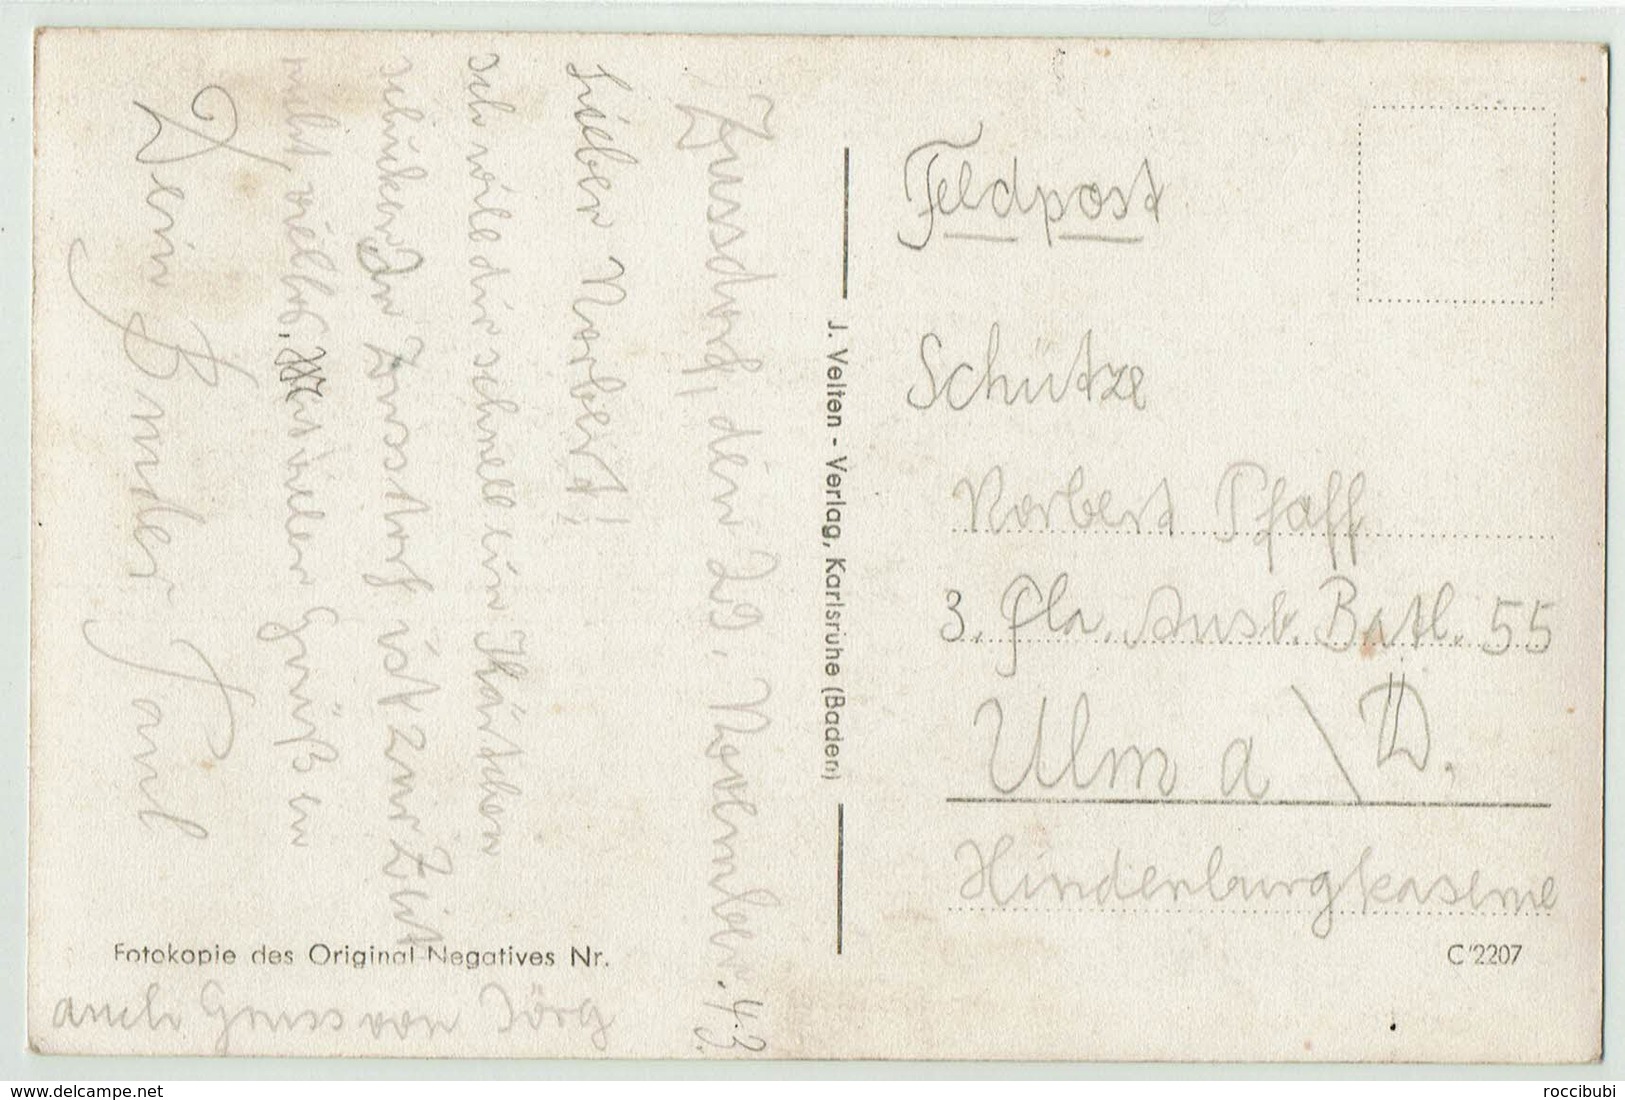 Zussdorf, den 29. Novemler. 43.
Lieber Norbert!
ich will dir schnell ein Kärtchen
schicken. In Zusstorf ist zur Zeit
nicht vielos. Mit vielen Grüß en
Dein Bruder Paul
Fotokopie des Original-Negatives Nr.
auch Gruss von Jörg
J. Velten - Verlag, Karlsruhe (Baden)
Feldpost
Schütze
Norbert Pfaff
3. Fla. Ausb. Batl. 55
Ulm a \ D.
Hindenburgkaserne
C 2207
delcampe.net
roccibubi